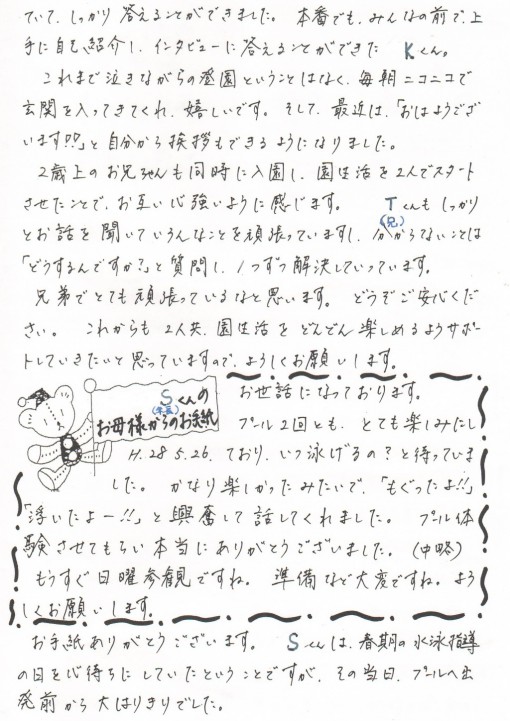 ていて、しっかり答えることができました。本番でも、みんなの前で、上
手に自己紹介し、インタビューに答えることができた Kくん。
これまで泣きながらの登園ということはなく、毎朝ニコニコで
玄関を入ってきてくれ、嬉しいです。そして、最近は、「おはようござい
います!?」と自分から挨拶もできるようになりました。
2歳上のお兄ちゃんも同時に入園し、園生活を2人でスタート
させたことで、お互い心強いように感じます。Tくんもしっかり
(兄)
とお話を聞いていろんなことを頑張っていますし、分からないことは
「どうするんですか?」と質問し、1つずつ解決していっています。
兄弟でとても頑張っているなと思います。どうぞご安心くだ
さい。これからも2人共、園生活をどんどん楽しめるようサポー
トしていきたいと思っていますので、よろしくお願いします。
Sくんの
(年長)
お母様からのお手紙
H.28.5.26.
お世話になっております。
プール2回とも、とても楽しみにし
ており、いつ泳げるの?と待っていま
した。かなり楽しかったみたいで、「もぐったよ!!」
「浮いたよー!!」と興奮して話してくれました。プール体
験させてもらい本当にありがとうございました。(中略)
もうすぐ日曜参観ですね。準備など大変ですね。よろ
しくお願いします。
お手紙ありがとうございます。Sくんは、春期の水泳指導
の日を心待ちにしていたということですが、その当日、プールへ出
発前から大はりきりでした。